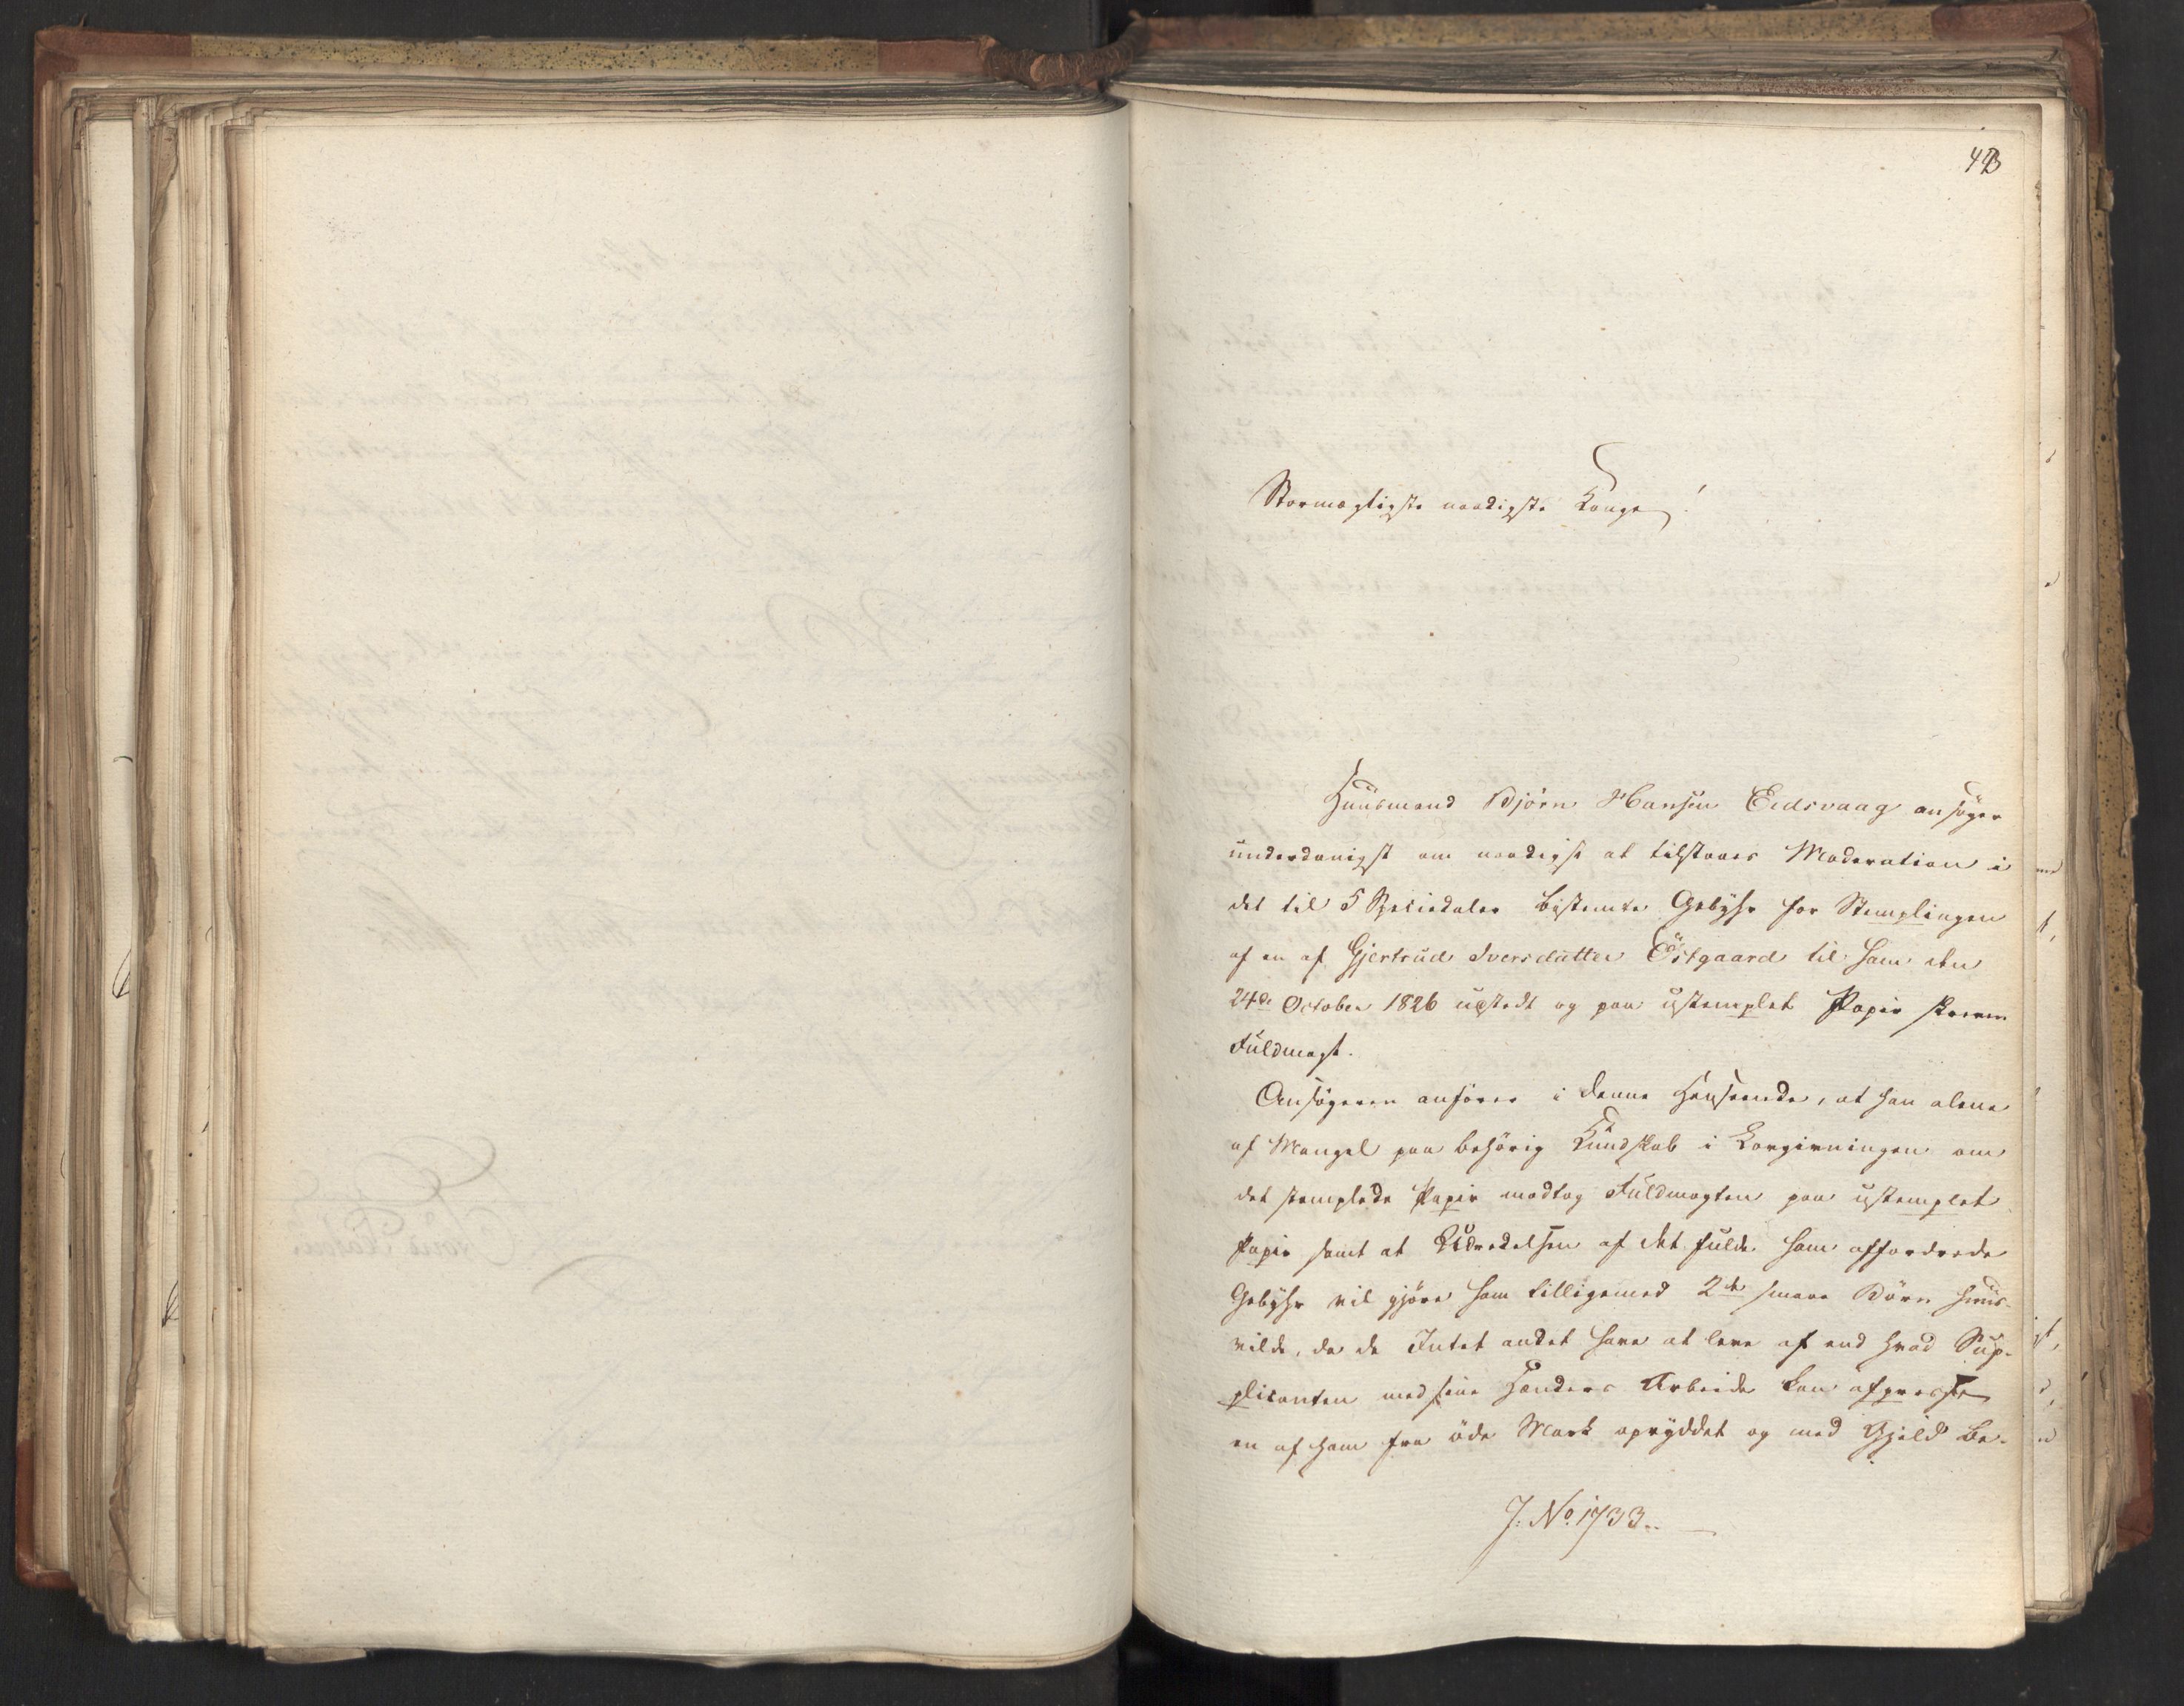 423
Stormægtigste naadigste Konge!
Huusmand Björn Hansen Eidsvaag ansöger
underdanigst om naadigst at tilstaaes Moderation i
det til 5 Speciedaler bestemte Gebyhr for Stemplingen
af en af Gjertrud Iversdatter Östgaard til ham den
24de October 1826 udstedt og paa ustemplet Papir skreven
Fuldmagt.
Ansögeren anförer i denne Henseende, at han alene
af Mangel paa behörig Kundskab i Lovgivningen om
det stemplede Papir modtog Fuldmagten paa ustemplet
Papir samt at Udredelsen af det fulde ham affordrede
Gebyhr vil gjöre ham tilligemed 2de smaae Börn huus-
vilde, da de Intet andet have at leve af end hvad Sup-
plicanten med sine Hænders Arbeide kan afpresse
en af ham fra öde Mark opryddet og med Gjeld be-
J: No 1733.